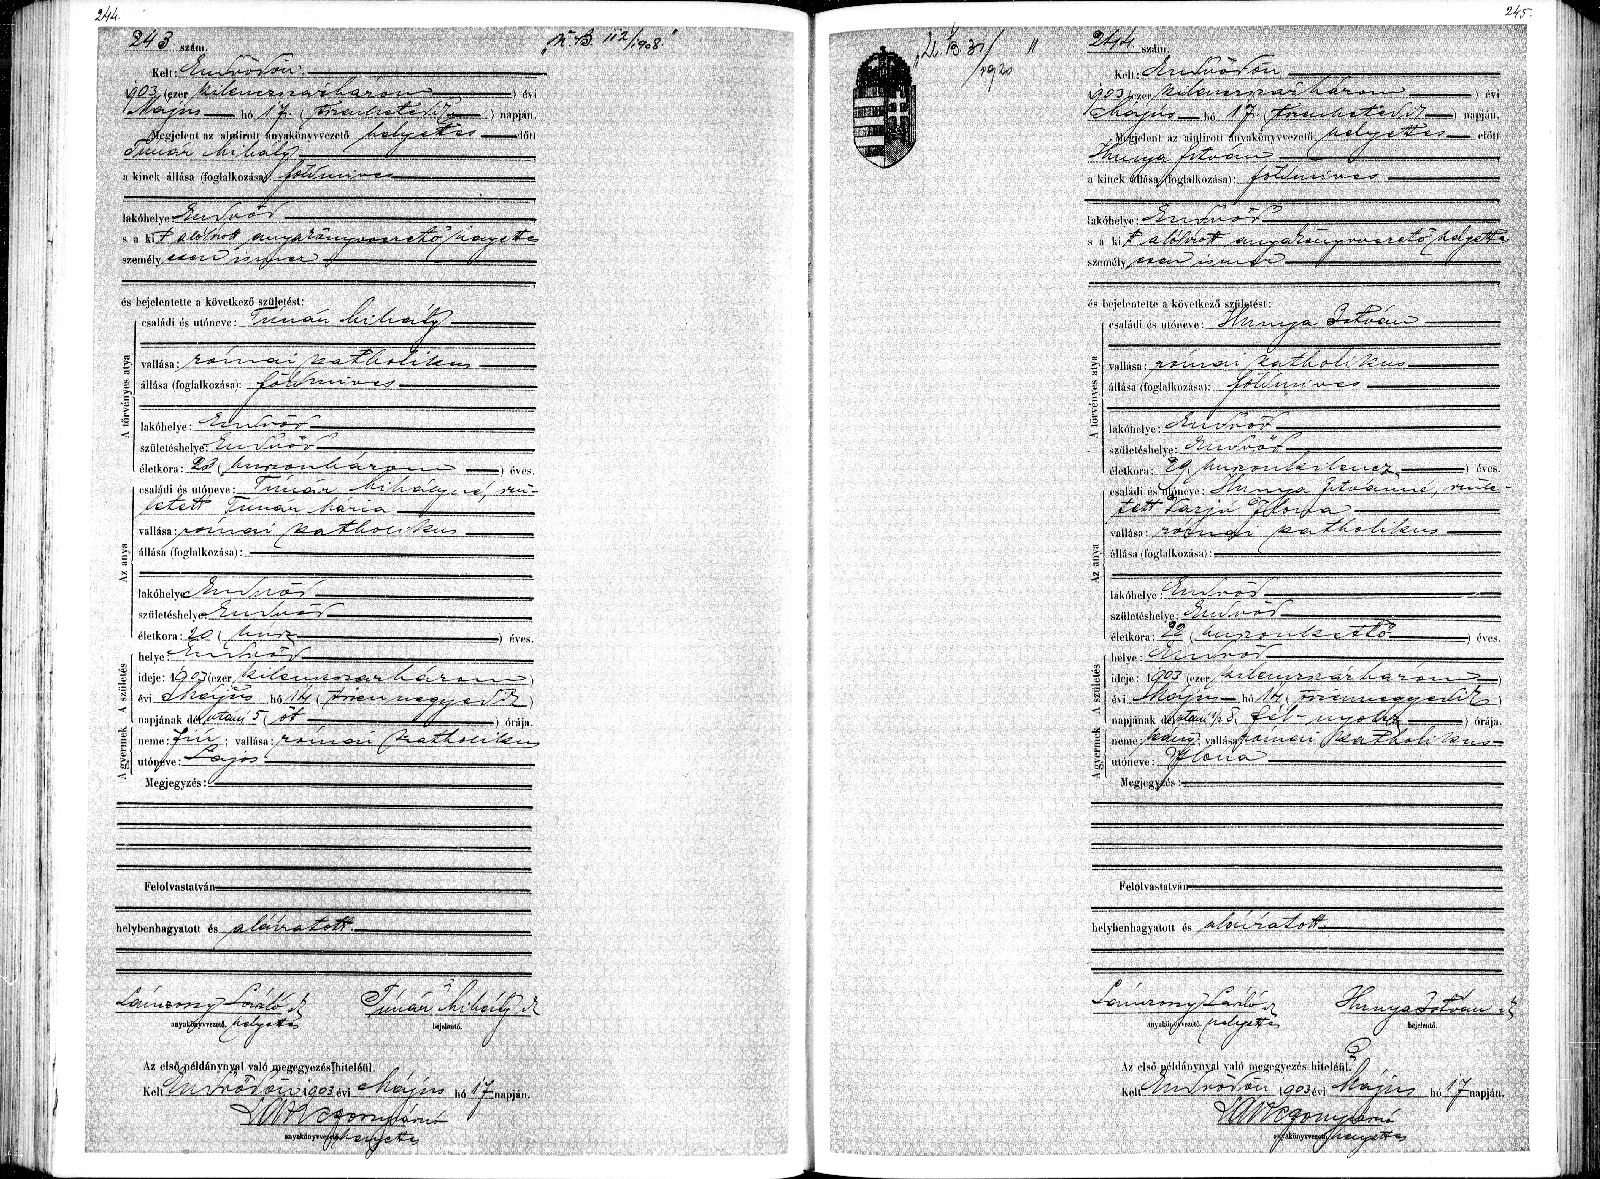 244.
243 szám.
"N. B. 112/1908"
Kelt: Endrődön
1903 (ezer kilenczszázhárom) évi
Május hó 17. (tizenhetedik) napján.
Megjelent az alulirott anyakönyvvezető helyettes előtt
Tímár Mihály
a kinek állása (foglalkozása) földmives
lakóhelye: Endrőd
s a kit alólirott anyakönyvvezető helyettes
személyesen ismer
és bejelentette a következő születést:
A törvényes atya
családi és utóneve: Tímár Mihály
vallása: római katholikus
állása (foglalkozása): földmives
lakóhelye: Endrőd
születéshelye: Endrőd
életkora: 23 (huszonhárom) éves.
Az anya
családi és utóneve: Tímár Mihályné, szü-
letett Tímár Mária
vallása: római katholikus
állása (foglalkozása):
lakóhelye Endrőd
születéshelye: Endrőd
életkora: 20 (husz) éves.
A születés
helye: Endrőd
ideje: 1903 (ezer kilenczszázhárom)
évi Május hó 14 (tizennegyedik)
napjának délutáni 5 (öt) órája.
A gyermek
neme: fiú; vallása: római katholikus
utóneve: Lajos
Megjegyzés:
Felolvastatván
helybenhagyatott és aláíratott.
László
Tímár Mihály
anyakönyvvezető. helyettes
bejelentő.
Az első példánynyal való megegyezés hiteléül.
Kelt Endrődön 1903 évi Május hó 17 napján.
anyakönyvvezető helyettes
245.
244 szám.
1920
Kelt: Endrődön
1903 (ezer kilenczszázhárom) évi
Május hó 17. (tizenhetedik) napján.
Megjelent az alulirott anyakönyvvezető helyettes előtt
Hunya István
a kinek állása (foglalkozása): földmives
lakóhelye: Endrőd
s a kit alólirott anyakönyvvezető helyettes
személyesen ismer
és bejelentette a következő születést:
A törvényes atya
családi és utóneve: Hunya István
vallása: római katholikus
állása (foglalkozása): földmives
lakóhelye: Endrőd
születéshelye: Endrőd
életkora: 29 (huszonkilencz) éves.
Az anya
családi és utóneve: Hunya Istvánné, szüle-
tett Varjú Ilona
vallása: római katholikus
állása (foglalkozása):
lakóhelye: Endrőd
születéshelye: Endrőd
életkora: 22 (huszonkettő) éves.
A születés
helye: Endrőd
ideje: 1903 (ezer kilenczszázhárom)
évi Május hó 14 (tizennegyedik)
napjának délutáni ½8 (fél-nyolcz) órája.
A gyermek
neme: leány; vallása: római katholikus
utóneve: Ilona
Megjegyzés:
Felolvastatván
helybenhagyatott és aláíratott.
László
Hunya István
anyakönyvvezető. helyettes
bejelentő.
Az első példánynyal való megegyezés hiteléül.
Kelt Endrődön 1903 évi Május hó 17 napján.
anyakönyvvezető helyettes